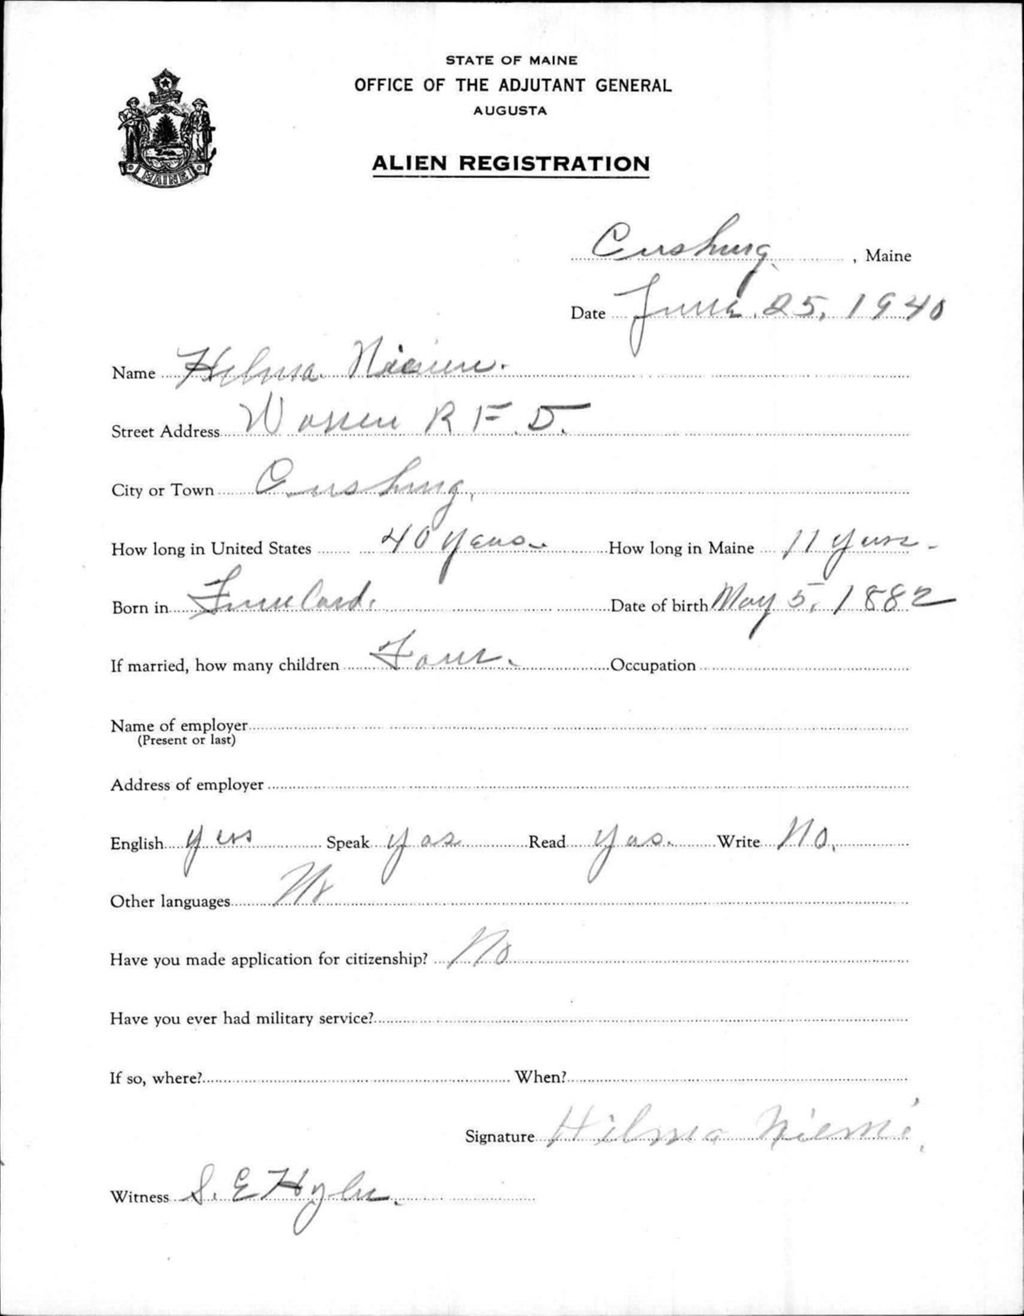 STATE OF MAINE
OFFICE OF THE ADJUTANT GENERAL
AUGUSTA
MAINE
ALIEN REGISTRATION
Cushing, Maine
Date June 25, 1940
Name Helma
Street Address Warren R.F.D.
City or Town Cushing,
How long in United States 40 years. How long in Maine 11 years.
Born in Finland. Date of birth May 5, 1882
If married, how many children Four. Occupation
Name of employer
(Present or last)
Address of employer
English yes Speak yes Read yes. Write No.
Other languages No
Have you made application for citizenship? No
Have you ever had military service?
If so, where? When?
Signature Hilma Niemi.
Witness S. E Hyler.